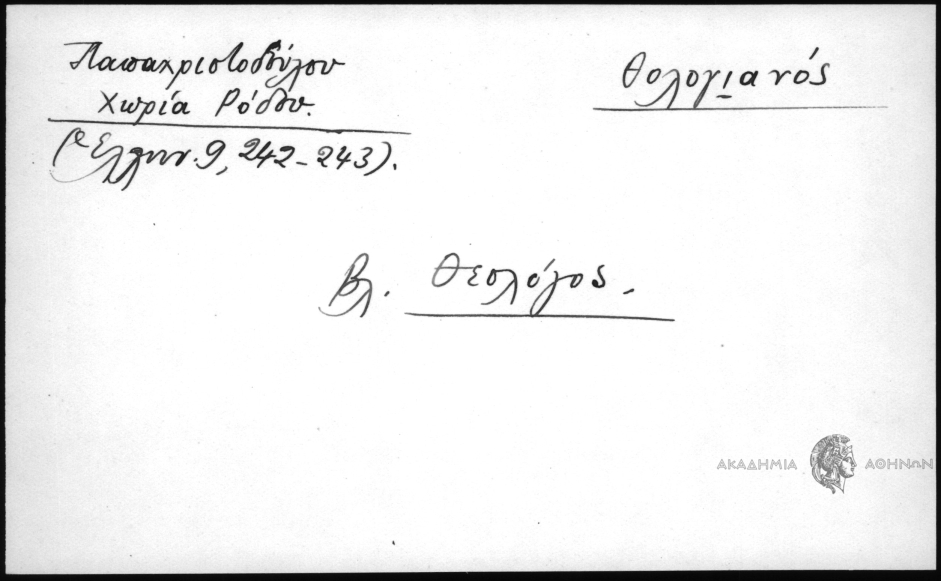 Παπαχριστοδούλου
Χωρία Ρόδου.
(Ἑλλην. 9, 242-243).
Θολογιανός
Βλ. Θεολόγος.
ΑΚΑΔΗΜΙΑ ΑΘΗΝΩΝ